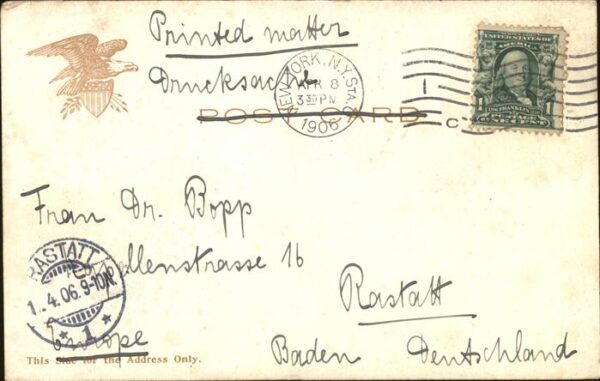 Printed matter
Drucksache
POST CARD
NEW YORK, N.Y. STA.
APR 8
330 PM
1906
1
C
UNITED STATES OF
AMERICA
1
1
Frau Dr. Bopp
Kapellenstrasse 16
Rastatt
Baden Deutschland
Europe
RASTATT
4.06.9-10
* 1 *
This Side for the Address Only.